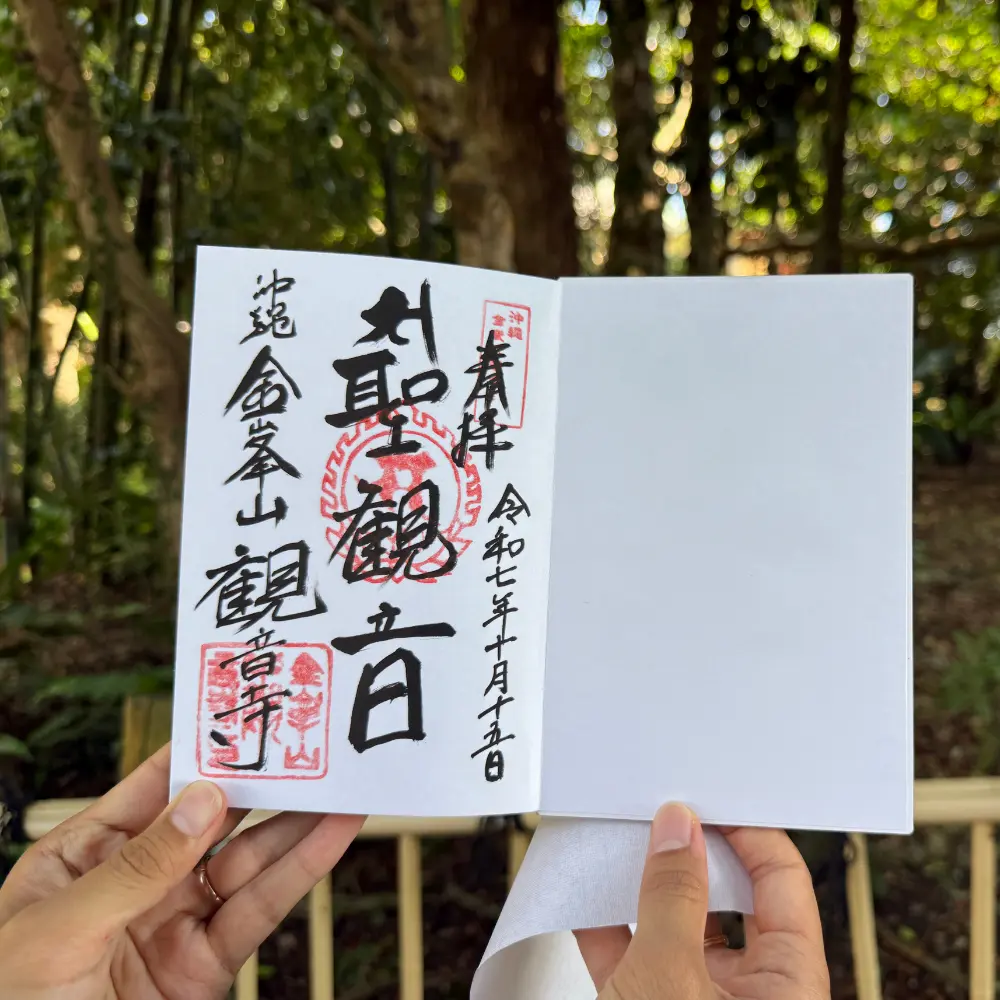 沖縄
奉拝
令和七年十月十五日
聖観音
沖縄
金峯山観音寺
金峯山